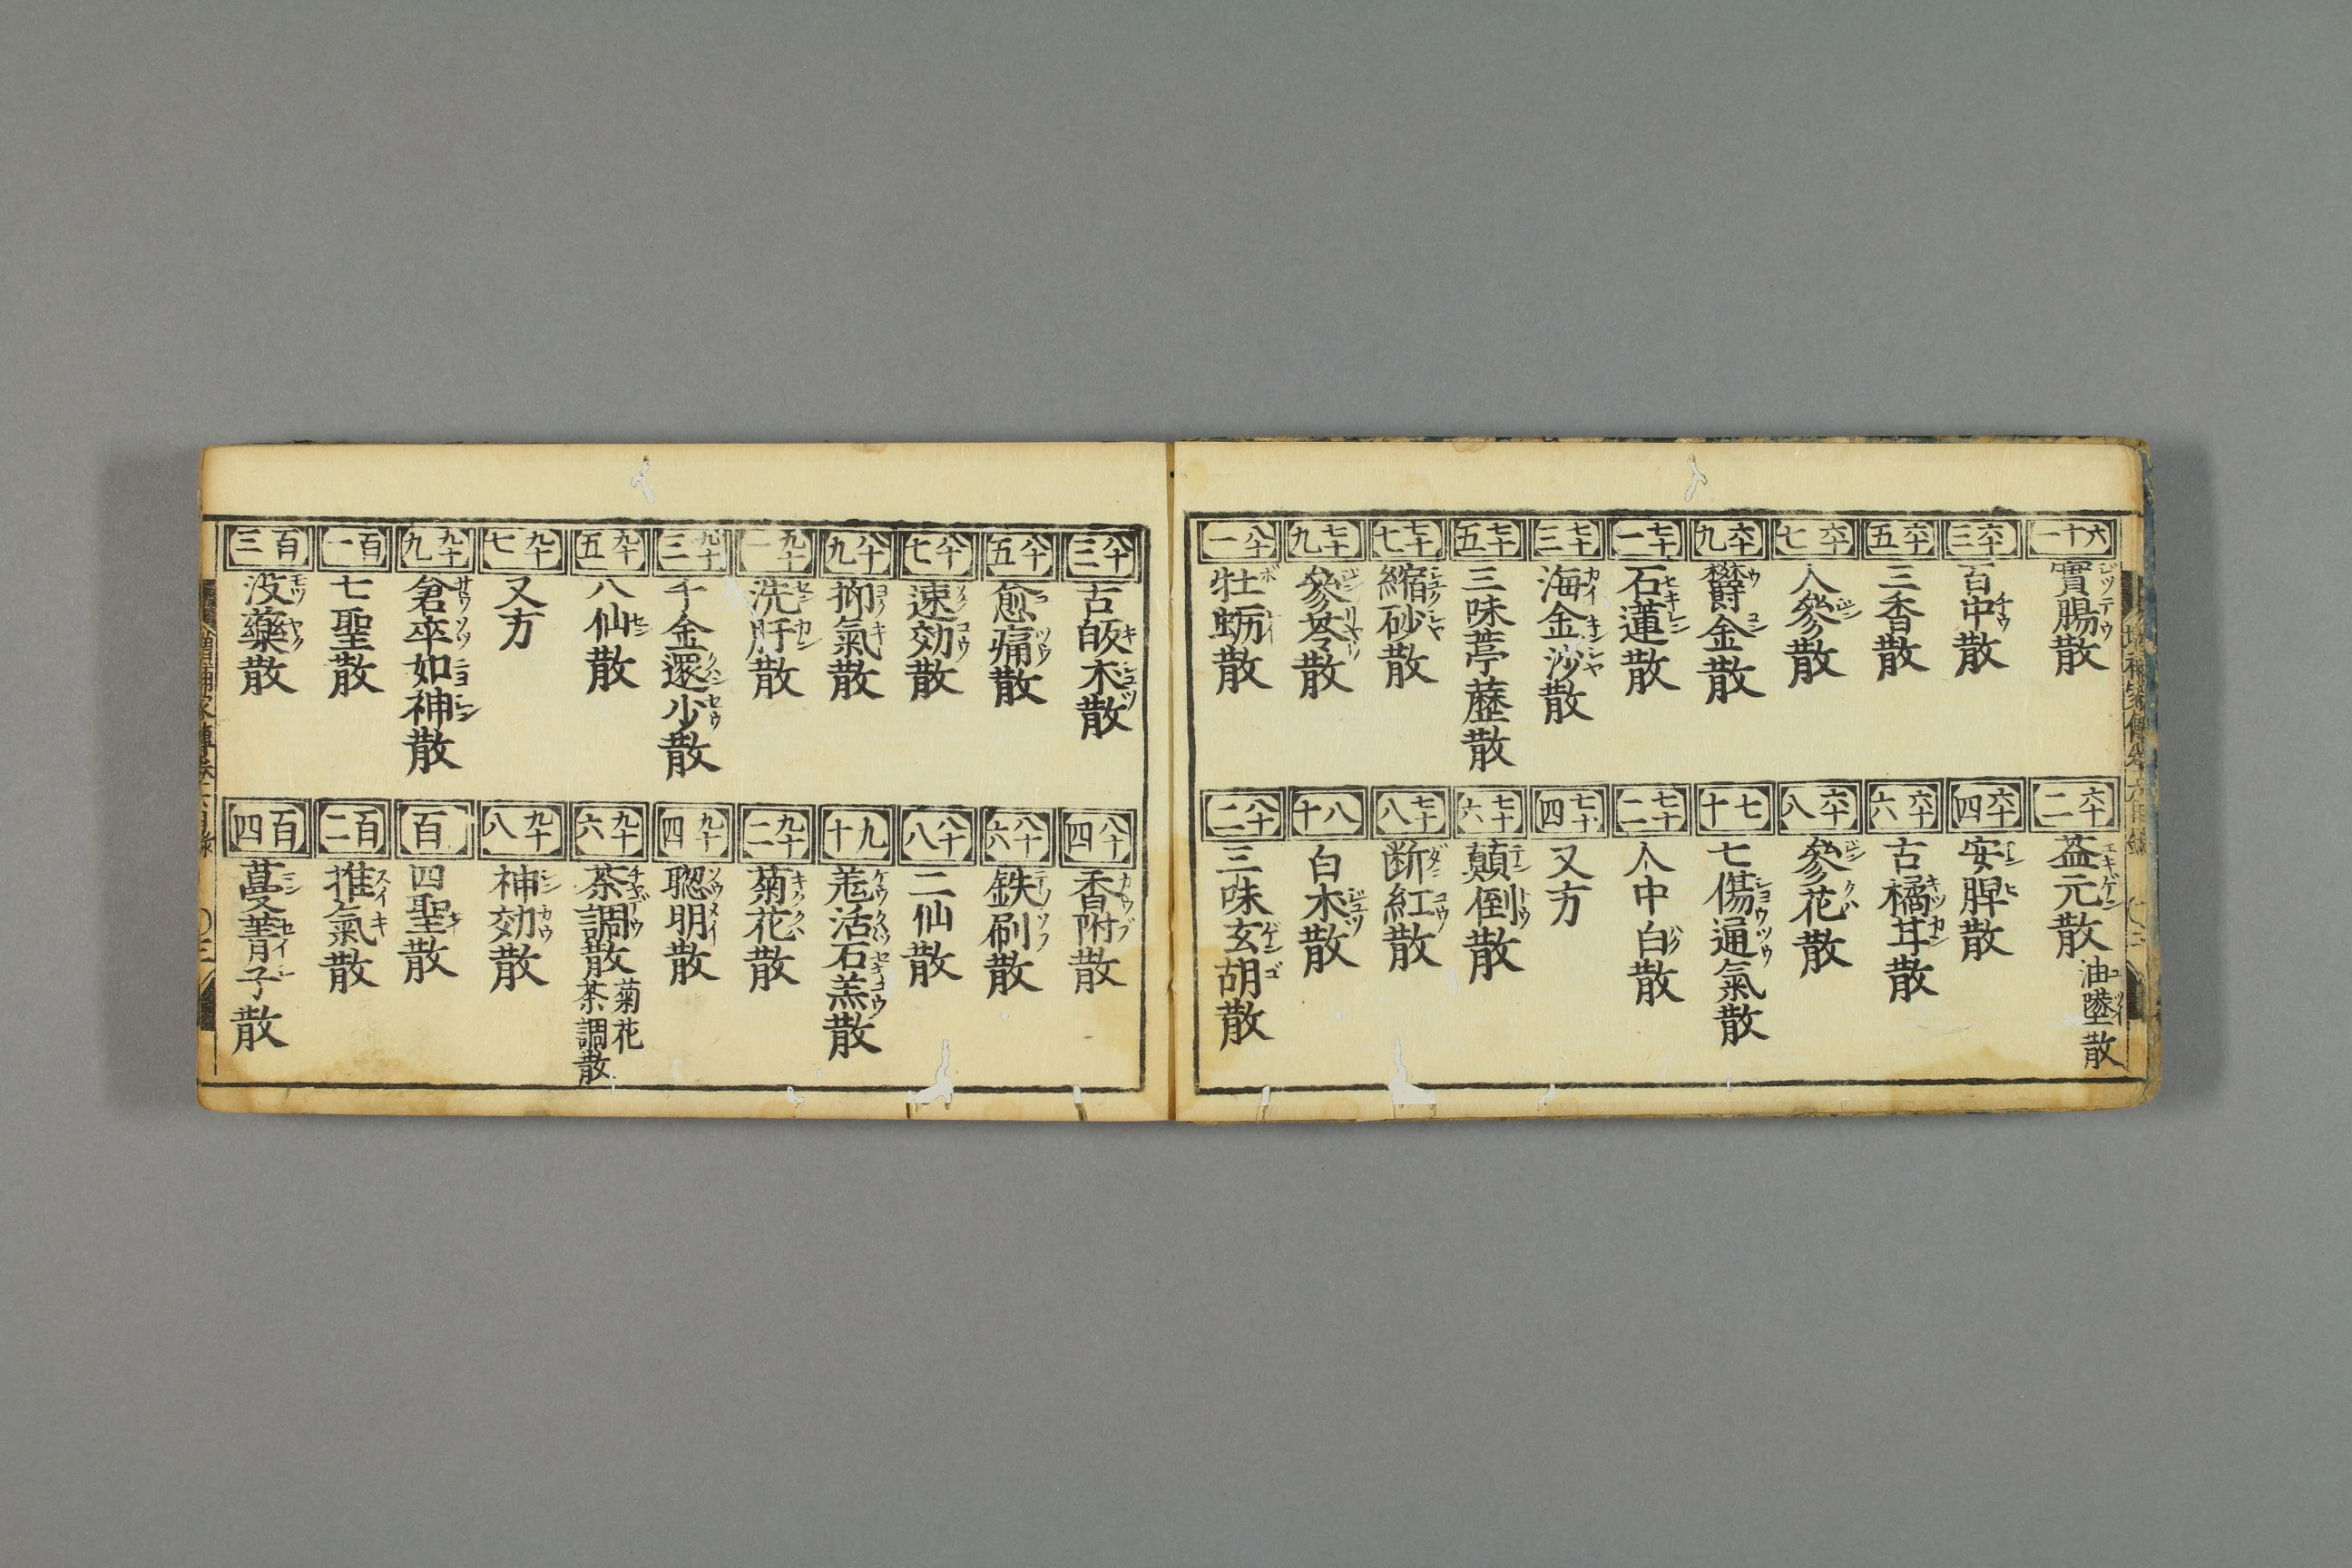 六十一
實腸散
六十二
益元散 油墜散
六十三
百中散
六十四
安脾散
六十五
三香散
六十六
古橘甘散
六十七
人參散
六十八
參花散
六十九
欝金散
七十
七傷通氣散
七十一
石蓮散
七十二
人中白散
七十三
海金沙散
七十四
又方
七十五
三味葶藶散
七十六
顛倒散
七十七
縮砂散
七十八
断紅散
七十九
參苓散
八十
白朮散
八十一
牡蛎散
八十二
三味玄胡散
八十三
古皈朮散
八十四
香附散
八十五
愈痛散
八十六
鉄刷散
八十七
速効散
八十八
二仙散
八十九
抑氣散
九十
羗活石羔散
九十一
洗肝散
九十二
菊花散
九十三
千金還少散
九十四
聰明散
九十五
八仙散
九十六
茶調散 菊花茶調散
九十七
又方
九十八
神効散
九十九
倉卒如神散
百
四聖散
百一
七聖散
百二
推氣散
百三
没藥散
百四
蔓菁子散